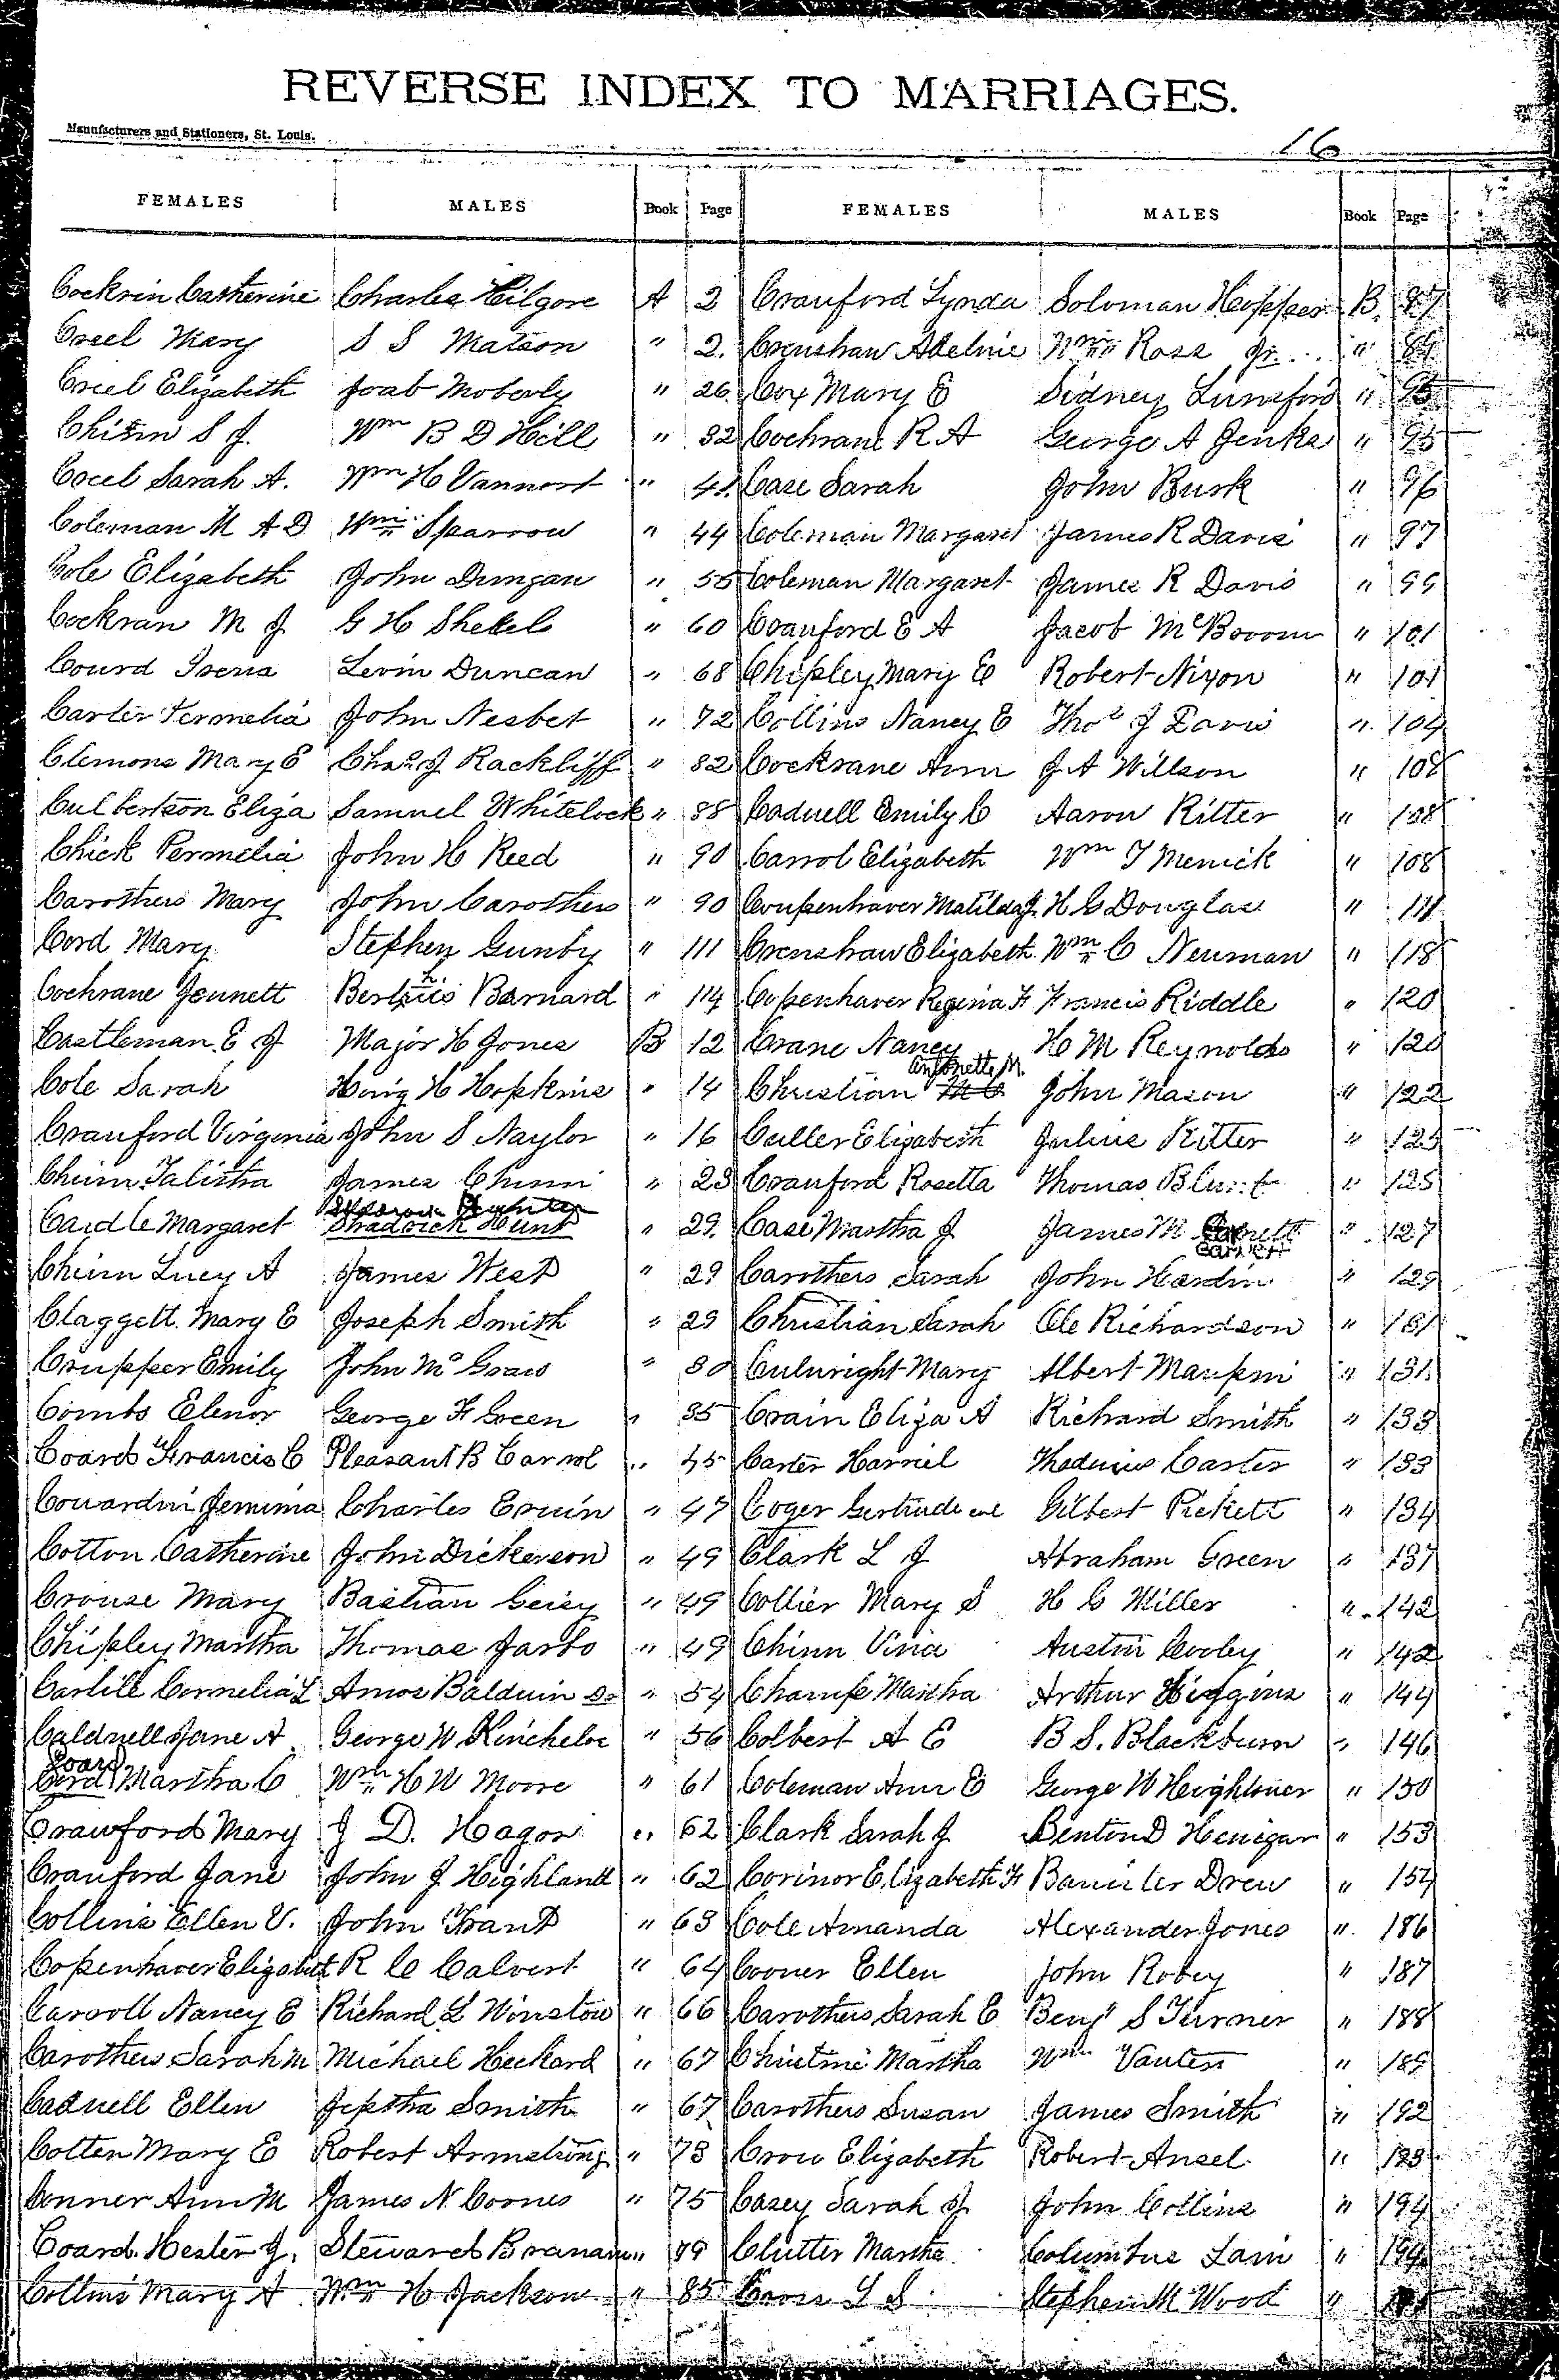 REVERSE INDEX TO MARRIAGES.
Manufacturers and Stationers, St. Louis.
16
FEMALES MALES Book Page FEMALES MALES Book Page
Cockrin Catherine Charles Kilgore A 2 Crauford Lynda Soloman Hopper B. 87
Creel Mary S S Matson " 2. Crenshaw Adeline Wm Ross Jr. " 89
Creel Elizabeth Joab Moberly " 26 Cox Mary E Sidney Lunsford " 95
Chinn S J. Wm B D Hill " 32 Cochrane R A George A Jenks " 95
Creel Sarah A. Wm H Vannort " 41 Case Sarah John Busk " 96
Coleman M A D Wm Sparrow " 44 Coleman Margaret James R Davis " 97
Cole Elizabeth John Dungan " 55 Coleman Margaret James R Davis " 99
Cockran M J G H Shekels " 60 Crauford E A Jacob McBroom " 101
Courd Irena Levin Duncan " 68 Chipley Mary E Robert Nixon " 101
Carter Permelia John Nesbet " 72 Collins Nancy E Thos J Davis " 104
Clemons Mary E Chas J Rackliff " 82 Cocksane Ann J A Willson " 108
Culbertson Eliza Samuel Whitelock " 88 Caduell Emily C Aaron Ritter " 108
Chick Permelia John H Reed " 90 Carrol Elizabeth Wm T Merrick " 108
Carothers Mary John Carothers " 90 Coupenhaver Matilda J. H C Douglas " 111
Cord Mary Stephen Gunby " 111 Crenshaw Elizabeth Wm C Neuman " 118
Cochrane Jennett Berthis Barnard " 114 Copenhaver Regina F Francis Riddle " 120
Castleman E J Major H Jones B 12 Crane Nancy H M Reynolds " 120
Antonette M.
Cole Sarah Haig H Hopkins " 14 Christian M C John Mason " 122
Crauford Virginia John S Naylor " 16 Culler Elizabeth Julius Ritter " 125
Chinn Talitha James Chinn " 23 Crauford Rosetta Thomas Blunt " 125
Caudle Margaret Shadrick Hunt " 29. Case Martha J James M Garnett " 127
Garnett
Chinn Lucy A James West " 29 Carothers Sarah John Hardin " 129
Claggett Mary E Joseph Smith " 29 Christian Sarah Ole Richardson " 131
Crupper Emily John McGraw " 30 Culuright Mary Albert Maupin " 131
Combs Elenor George F Green " 35 Crain Eliza A Richard Smith " 133
Coard Francis C Pleasant B Carrol " 45 Carter Harriel Thadeius Carter " 133
Couardin Jemima Charles Eruin " 47 Coger Gertrude col Gilbert Pickett " 134
Cotton Catherine John Dickerson " 49 Clark L J Abraham Green " 137
Crouse Mary Bastian Geisy " 49 Collier Mary S H C Miller " 142
Chipley Martha Thomas Jarbo " 49 Chinn Viria Austin Cooley " 142
Carlile Cornelia L Amos Balduin Sr " 54 Champ Martha Arthur Higgins " 144
Calduell Jane A George W Kincheloe " 56 Colbert A E B S. Blackburn " 146
Coard
Cord Martha C Wm H W Moore " 61 Coleman Ann E George W Heightower " 150
Crawford Mary J D. Hagor " 62 Clark Sarah J Benton D Henegar " 153
Crauford Jane John J Highland " 62 Corinor Elizabeth F Banister Drew " 154
Collins Ellen V. John Grant " 63 Cole Amanda Alexander Jones " 186
Copenhaver Elizabeth R C Calvert " 64 Cooner Ellen John Robey " 187
Carroll Nancy E Richard L Winstow " 66 Carothers Sarah E Benj S Turner " 188
Carothers Sarah M Michael Heckard " 67 Christine Martha Wm Vauters " 189
Caduell Ellen Jeptha Smith " 67 Carothers Susan James Smith " 192
Cotten Mary E Robert Armstrong " 73 Crow Elizabeth Robert Ansel " 193
Conner Ann M James N Coones " 75 Casey Sarah J John Collins " 194
Coard Hester J. Steward Branam " 79 Clutter Martha Columbus Lain " 194
Collins Mary A Wm H Jackson " 85 Cross L S Stephen M Wood "